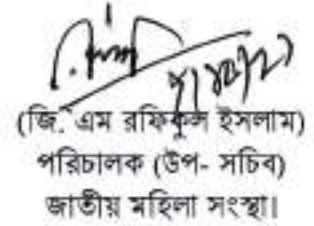 (জি. এম রফিকুল ইসলাম)
পরিচালক (উপ- সচিব)
জাতীয় মহিলা সংস্থা।